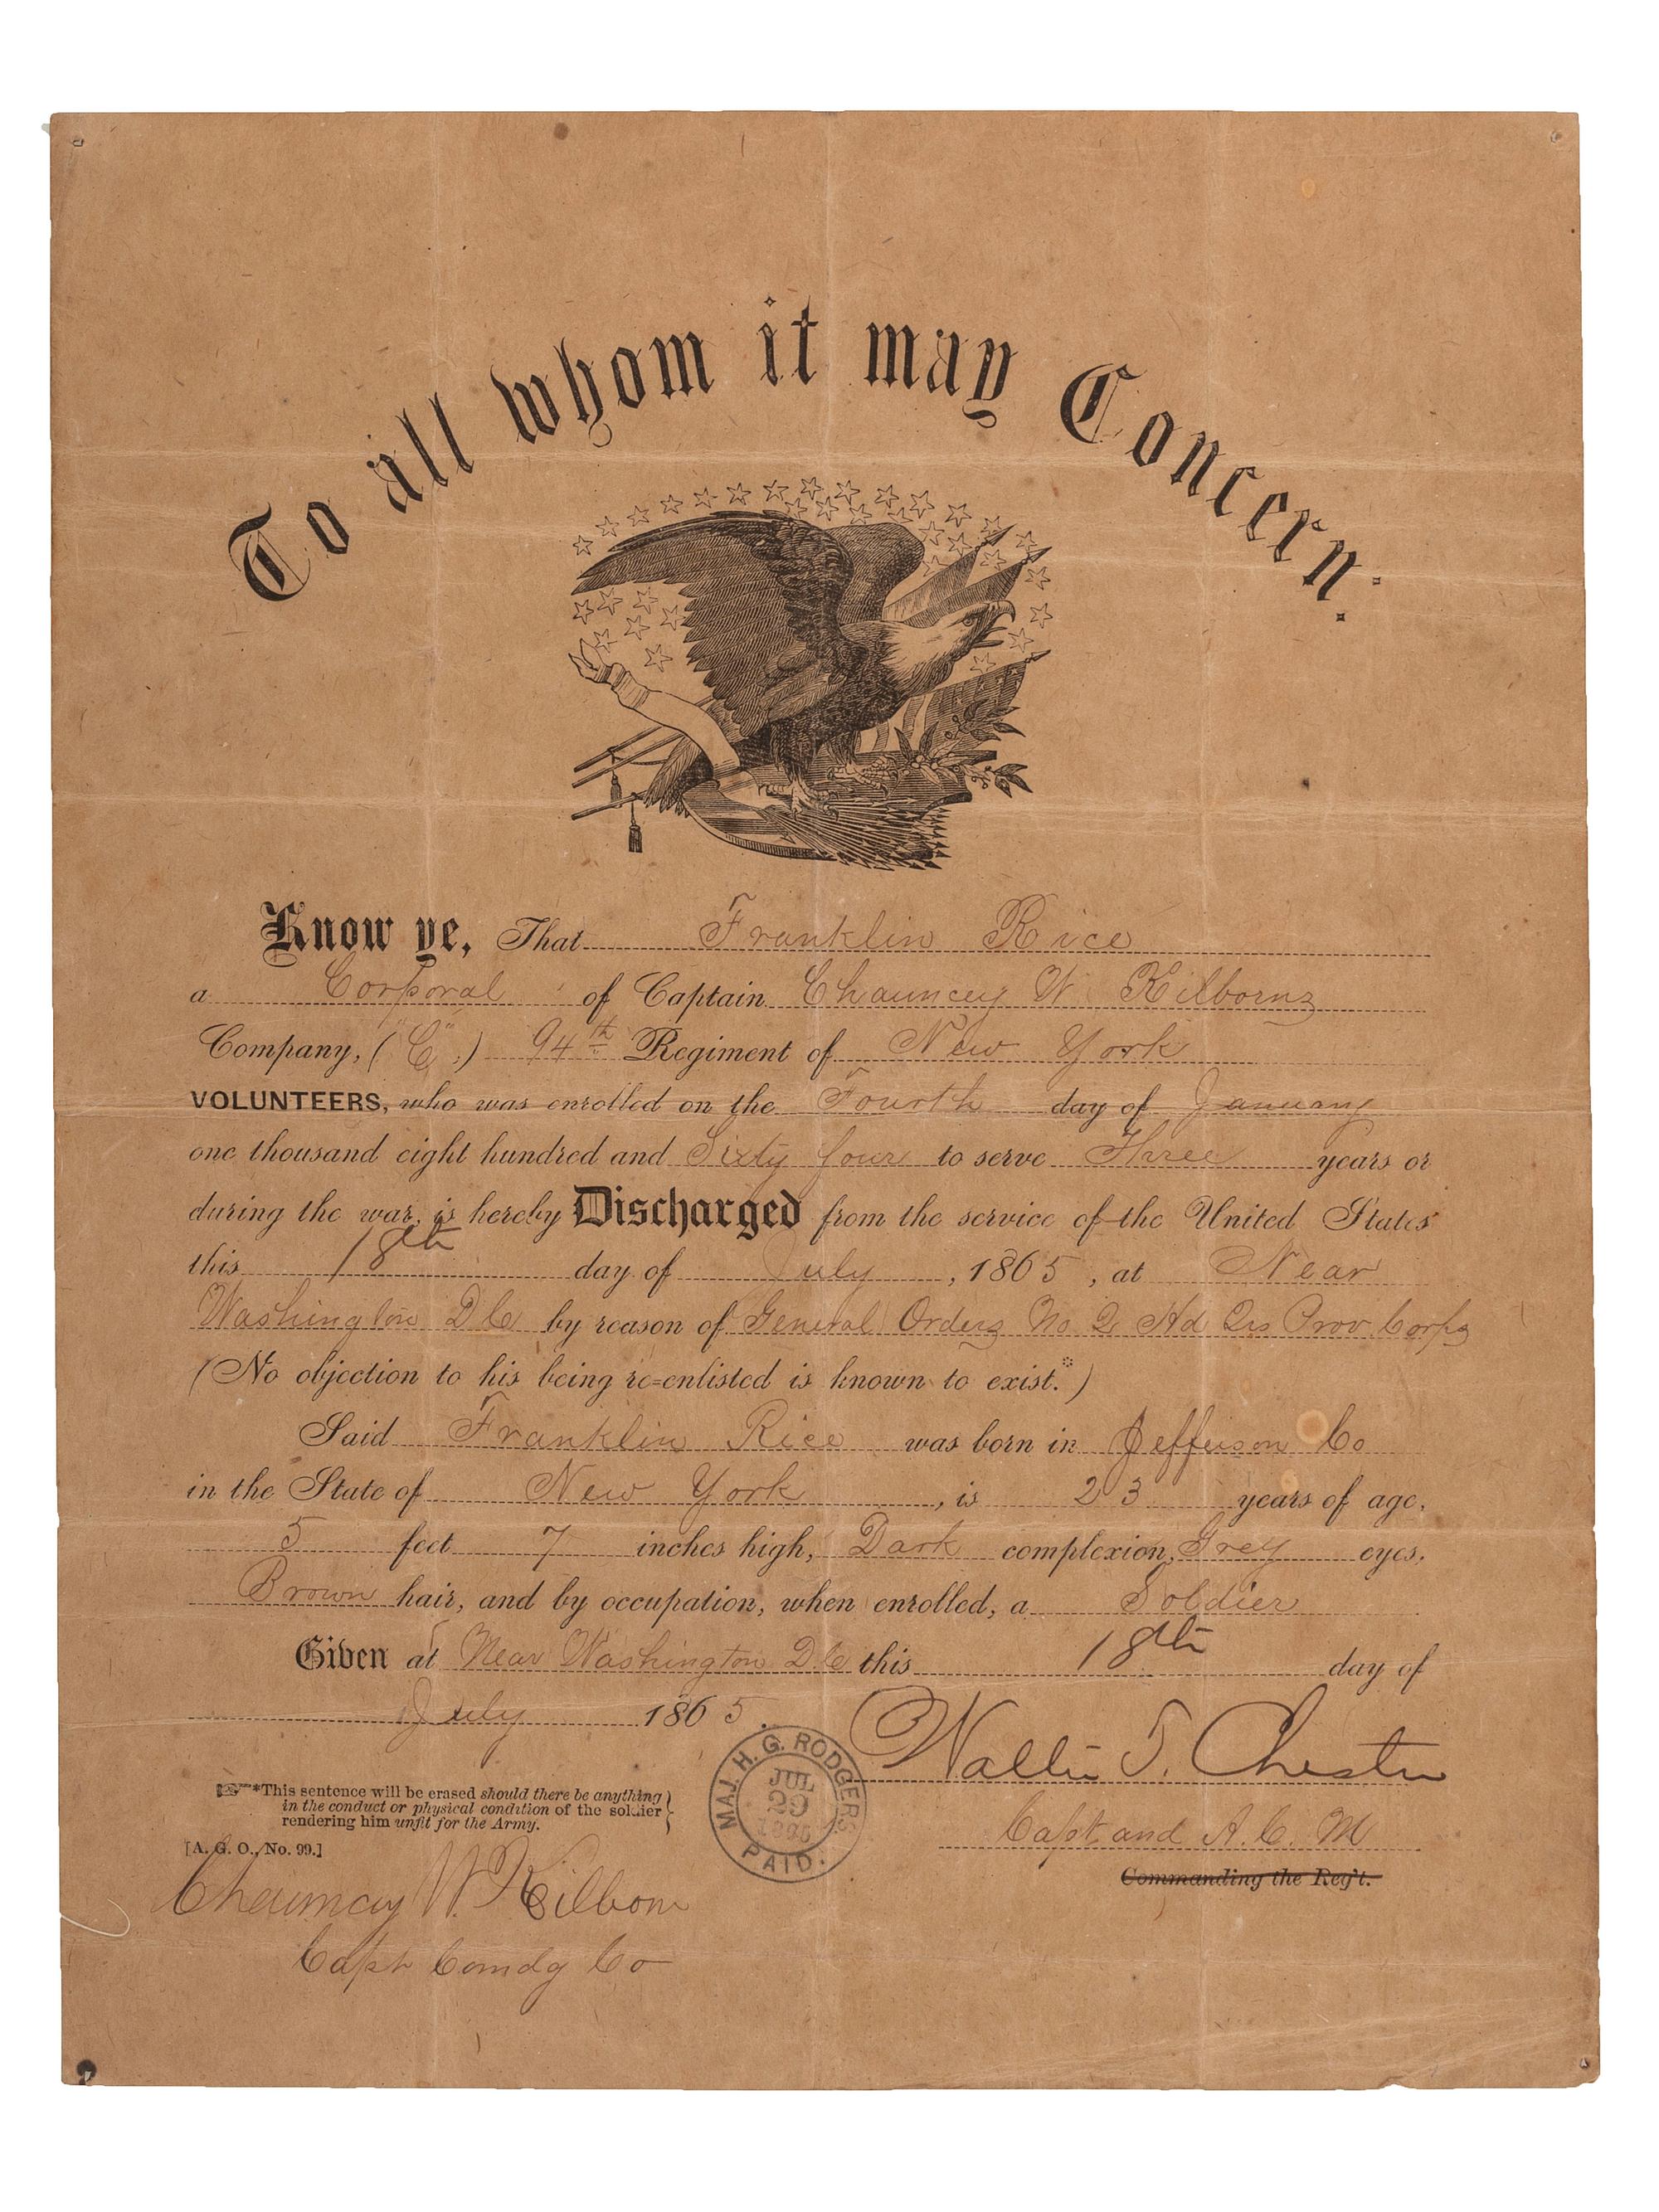 To all whom it may Concern:
Know ye, That Franklin Rice
a Corporal of Captain Chauncey W Kilborns
Company, ("C",) 94th Regiment of New York
VOLUNTEERS, who was enrolled on the Fourth day of January
one thousand eight hundred and Sixty four to serve Three years or
during the war, is hereby Discharged from the service of the United States
this 18th day of July, 1865, at Near
Washington D C by reason of General Orders No 2 Hd Qrs Prov Corps
(No objection to his being re-enlisted is known to exist.*)
Said Franklin Rice was born in Jefferson Co
in the State of New York, is 23 years of age,
5 feet 7 inches high, Dark complexion, Grey eyes,
Brown hair, and by occupation, when enrolled, a Soldier
Given at Near Washington D.C. this 18th day of
July 1865.
MAJ. H. G. RODGERS.
JUL
29
PAID.
T. Chester
Capt and A. C. M
Commanding the Reg't.
*This sentence will be erased should there be anything
in the conduct or physical condition of the soldier
rendering him unfit for the Army.
[A. G. O., No. 99.]
Chauncey W. Kilborn
Capt Comdg Co